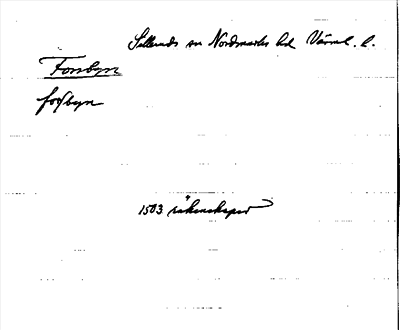 Silleruds sn Nordmarks hd Värml. l.
Forsbyn
forsbyn
1503 räkenskaper